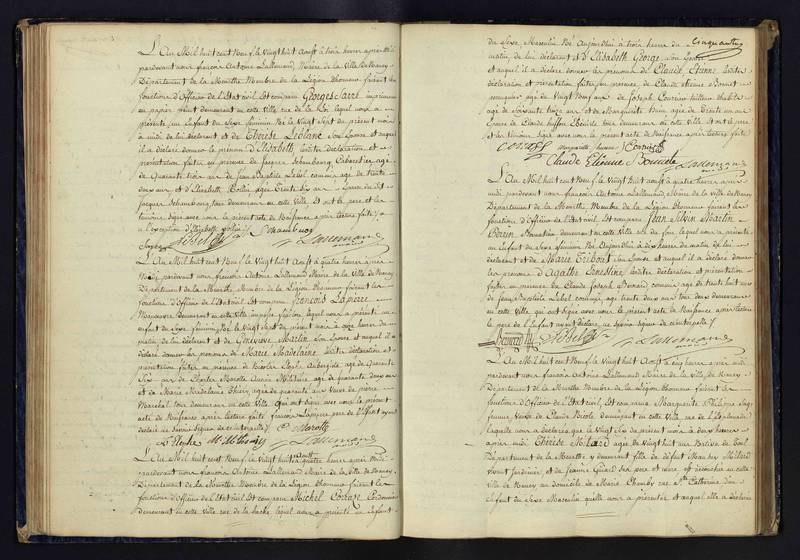 L'An Mil huit cent Neuf, le Vingt huit Aoust à trois heures après midi
pardevant nous françois Antoine Lallemand, Maire de la Ville de Nancy
Département de la Meurthe, Membre de la Légion d'honneur faisant les
fonctions d'Officier de l'Etat civil, Est comparu Georges
en papier peint demeurant en cette Ville, rue de la lequel nous a
présenté un Enfant du Sexe féminin Né le Vingt Sept du présent mois
à midi de lui déclarant et de Thérèse Leblanc son Epouse et auquel
il a déclaré donner le prénom d'Elisabeth lesdites déclaration et
présentation faites en présence de Jacques Cabaretier agé
de Quarante trois ans de Jean Baptiste Lebel commis agé de trente
deux ans et d'Elisabeth agée Trente Six ans Epouse dudit
Jacques tous demeurans en cette Ville Et ont le père et les
témoins signé avec nous le présent acte de Naissance après lecture faite
à l'exception d'Elisabeth
Lallemand
L'An Mil huit cent Neuf le Vingt huit Aoust à quatre heures après
Midi, pardevant nous françois Antoine Lallemand Maire de la Ville de Nancy
Département de la Meurthe, Membre de la Légion d'honneur faisant les
fonctions d'Officier de l'Etat civil Est comparu françois Lapierre
Manoeuvre demeurant en cette Ville lequel nous a présenté un
enfant du Sexe féminin Né le Vingt Sept du présent mois à onze heures du
matin de lui déclarant et de Geneviève Martin son Epouse et auquel il a
déclaré donner les prénoms de Marie Madelaine lesdites déclaration et
présentation faites en présence de Nicolas Aubergiste agé de Quarante
Six ans de Charles Marotte
et de Marie Madelaine Thiery agée de quarante ans Veuve de pierre
Maréchal tous demeurans en cette Ville Qui ont signé avec nous le présent
acte de Naissance après lecture faite françois Lapierre père de l'Enfant ayant
déclaré ne savoir signer de ce interpellé
C. Marotte
Lallemand
L'An Mil huit cent Neuf, le Vingt huit Aoust à quatre heures après Midi
pardevant nous françois Antoine Lallemand Maire de la Ville de Nancy
Département de la Meurthe, Membre de la Légion d'honneur faisant les
fonctions d'Officier de l'Etat civil Est comparu Michel Cordonnier
demeurant en cette Ville rue de la hache, lequel nous a présenté un Enfant
Cinquante
du Sexe Masculin Né Aujourd'hui à trois heures du
matin de lui déclarant et d'Elisabeth George son Epouse
et auquel il a déclaré donner les prénoms de Claude Etienne lesdites
déclaration et présentation faites en présence de Claude Etienne
agé de Vingt Neuf ans de Joseph tailleur d'habits
agé de soixante ans et de Marguerite agée de Trente un ans
Epouse de Claude tous demeurans en cette Ville Et ont le père
et les témoins signé avec nous le présent acte de Naissance après lecture faite
Claude Etienne
Lallemand
L'An Mil huit cent Neuf le Vingt huit Aoust à quatre heures après
midi pardevant nous françois Antoine Lallemand, Maire de la Ville de Nancy
Département de la Meurthe, Membre de la Légion d'honneur faisant les
fonctions d'Officier de l'Etat civil Est comparu Jean Martin
demeurant en cette Ville rue du lequel nous a présenté
un Enfant du Sexe féminin Né Aujourd'hui à dix heures du matin de lui
déclarant et de Marie son Epouse et auquel il a déclaré donner
les prénoms d'Agathe Ernestine lesdites déclaration et présentation
faites en présence de Claude Joseph Bernard commis agé de trente huit ans
de Jean Baptiste Lebel commis, agé trente deux ans tous deux demeurans
en cette Ville qui ont signé avec nous le présent acte de Naissance après lecture
le père de l'Enfant ayant déclaré ne savoir signer de ce interpellé
Lallemand
L'An Mil huit cent Neuf le Vingt huit Aoust à cinq heures après midi
pardevant nous françois Antoine Lallemand Maire de la Ville de Nancy
Département de la Meurthe Membre de la Légion d'honneur faisant les
fonctions d'Officier de l'Etat civil, Est comparue Marguerite Sage
femme Veuve de Claude Nicole demeurant en cette Ville rue de l'Esplanade
laquelle nous a déclaré que le Vingt Six du présent mois à deux heures
après midi Thérèse Milard agée de Vingt huit ans Native de Toul
Département de la Meurthe y demeurant fille de défunt Milard
Vivant Jardinier et de Jeanne ses père et mère est accouchée en cette
Ville de Nancy au domicile de Marie rue Ste Catherine d'un
Enfant du Sexe Masculin qu'elle nous a présenté et auquel elle a déclaré